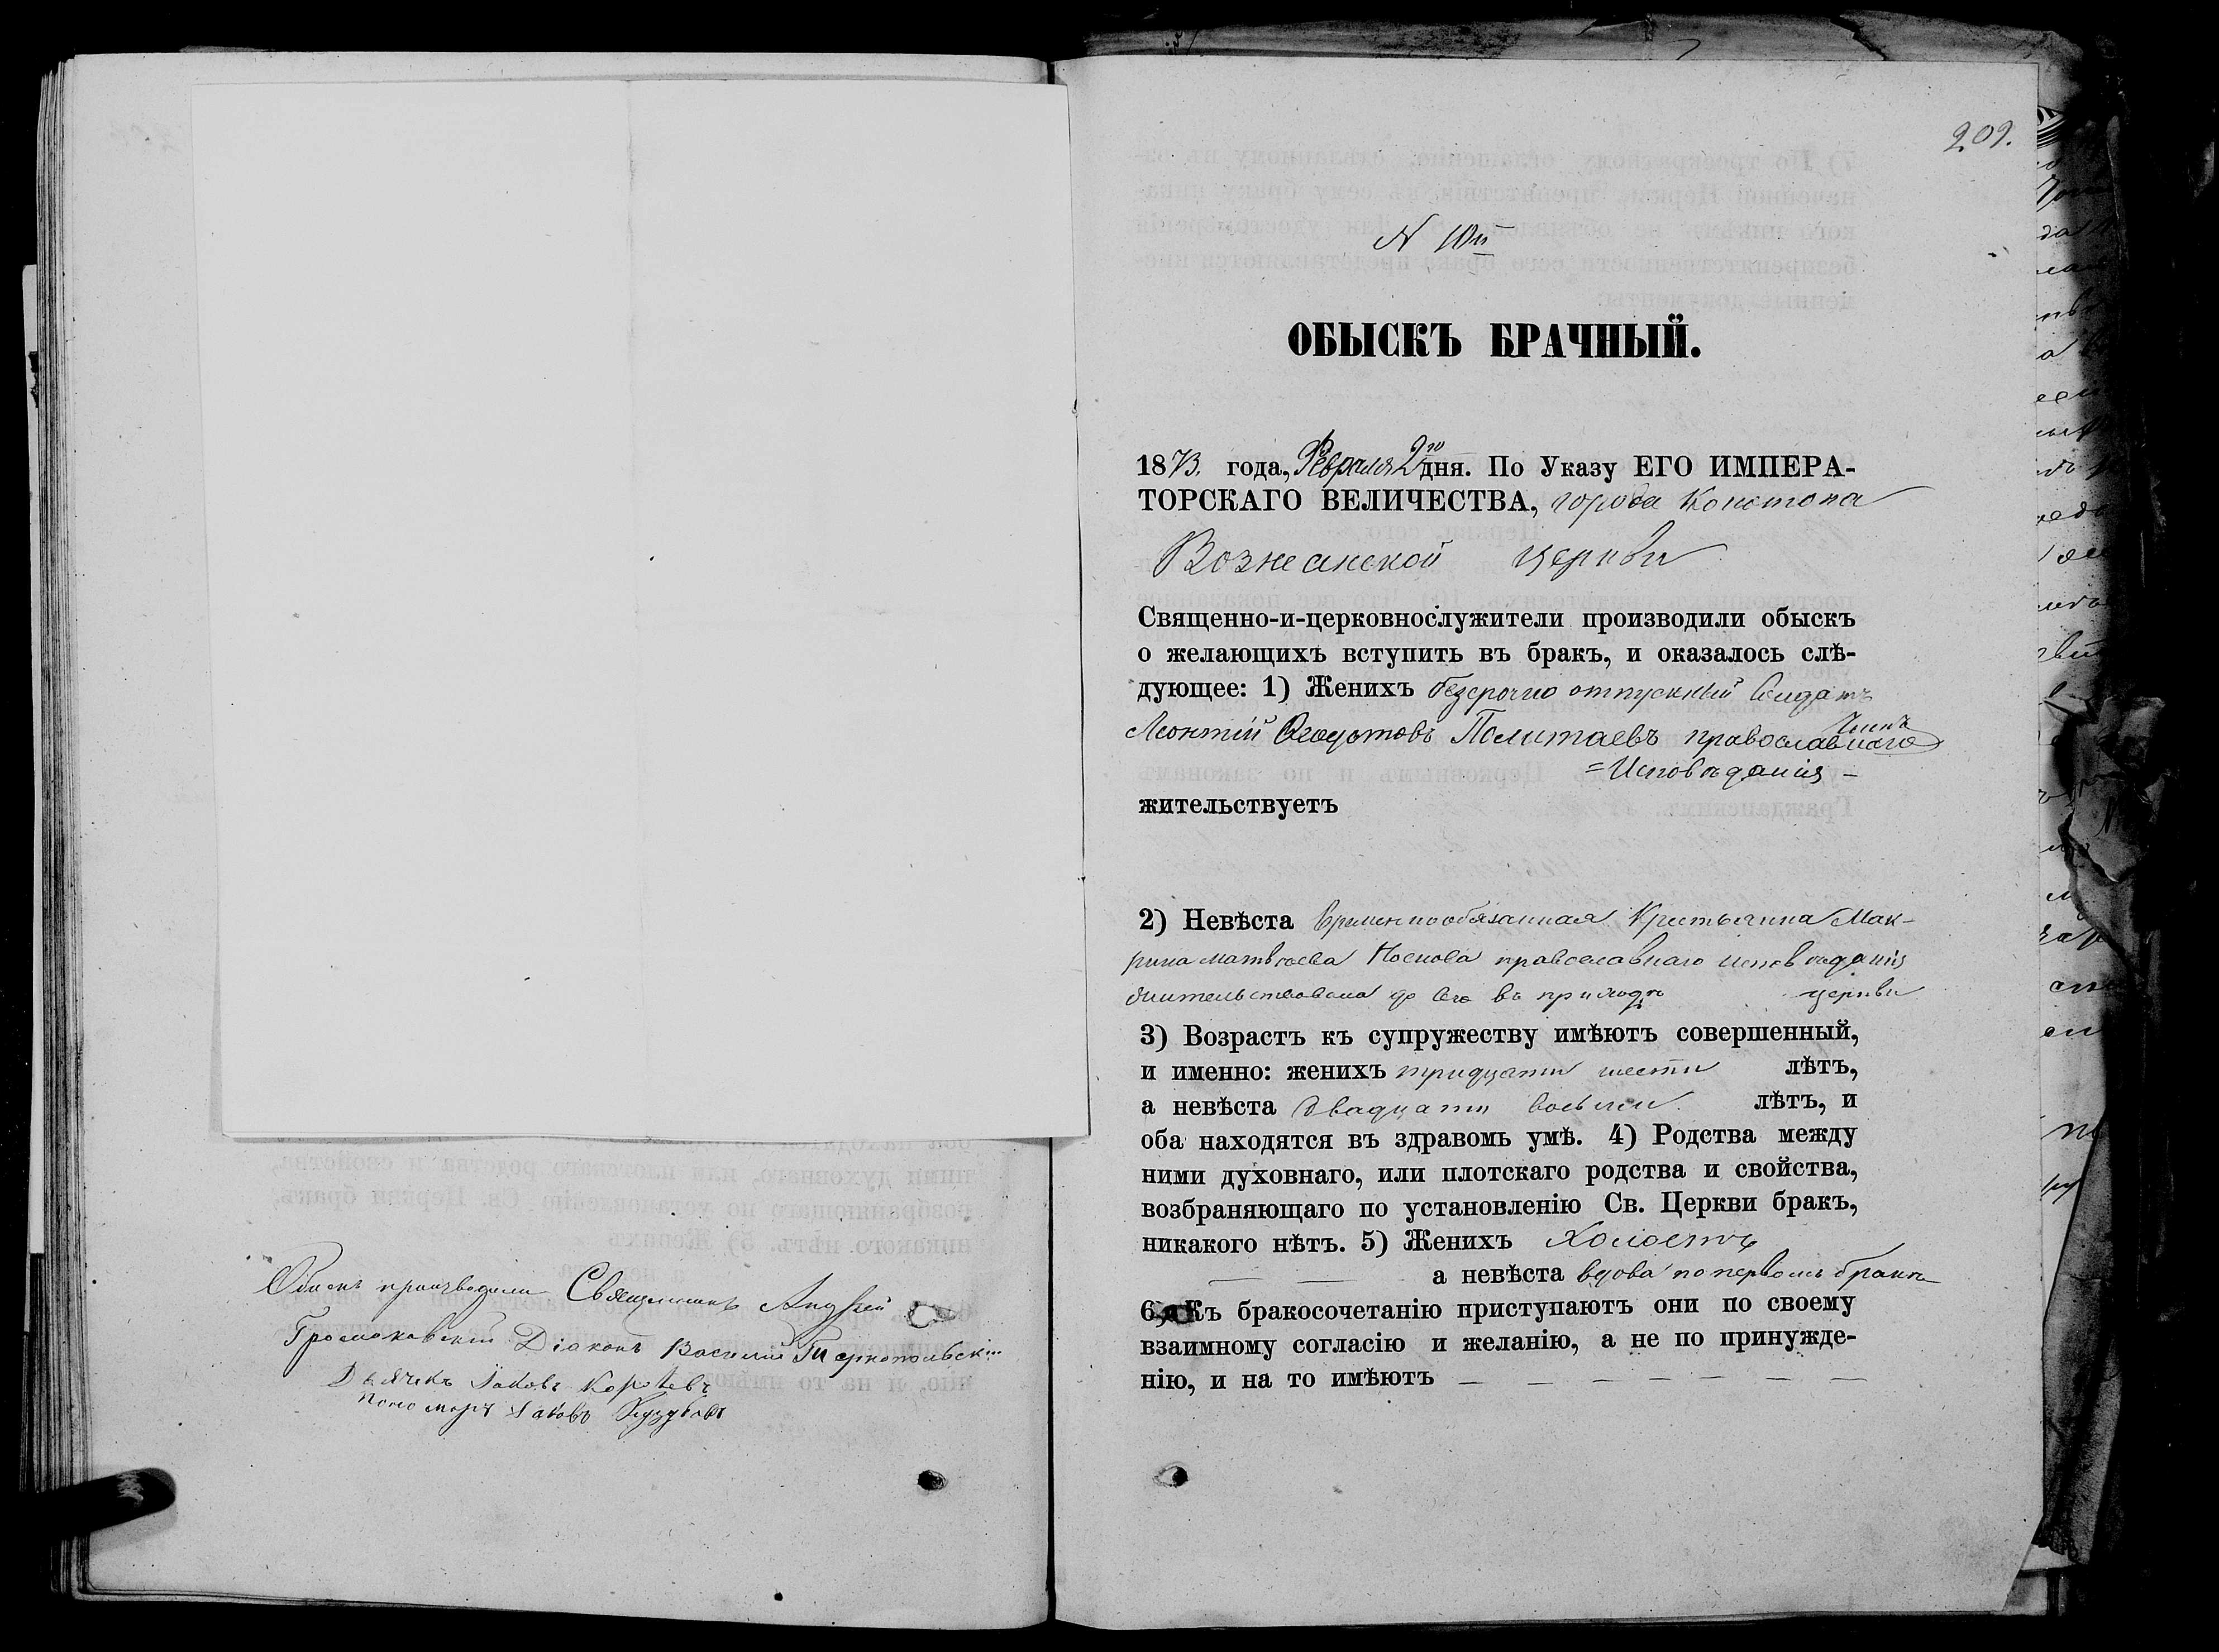 Обыскъ производили Священникъ Андрей
Громаковскій Діаконъ Василій Тернопольскій
Дьячекъ Іаковъ
Пономарь Іаковъ
209.
N 10й
ОБЫСКЪ БРАЧНЫЙ.
1873 года, Февраля 2го дня. По Указу ЕГО ИМПЕРА-
ТОРСКАГО ВЕЛИЧЕСТВА, города Конотопа
Вознесенской церкви
Священно-и-церковнослужители производили обыскъ
о желающихъ вступить въ бракъ, и оказалось слѣ-
дующее: 1) Женихъ безсрочно отпускный Солдатъ
Леонтій Политаевъ православнаго
=Исповѣданія-
жительствуетъ
2) Невѣста временнообязанная Крестьянка Мак-
рина Матвѣева Носкова православнаго исповѣданія
жительствовала до сего въ приходѣ церкви
3) Возрастъ къ супружеству имѣютъ совершенный,
и именно: женихъ тридцати шести лѣтъ,
а невѣста двадцати восьми лѣтъ, и
оба находятся въ здравомъ умѣ. 4) Родства между
ними духовнаго, или плотскаго родства и свойства,
возбраняющаго по установленію Св. Церкви бракъ,
никакого нѣтъ. 5) Женихъ Холостъ
— — а невѣста вдова по первомъ бракѣ
6) Къ бракосочетанію приступаютъ они по своему
взаимному согласію и желанію, а не по принужде-
нію, и на то имѣютъ — — — — — — —